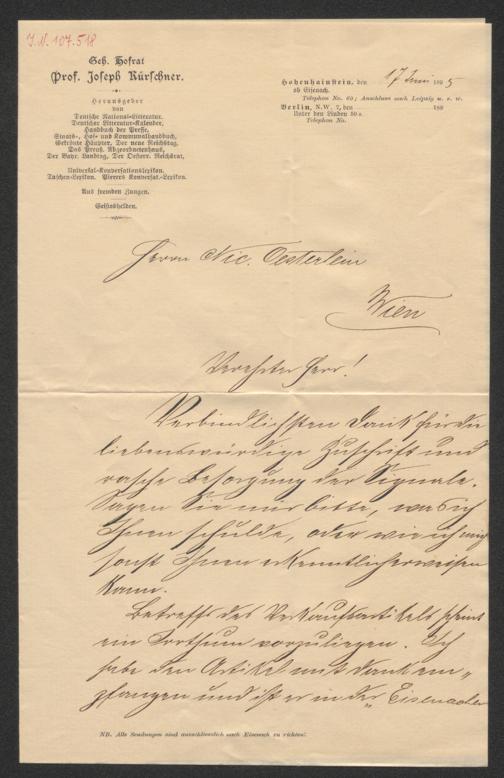 I.N. 107.518
Geh. Hofrat
Prof. Joseph Kürschner.
Herausgeber
von
Deutsche National-Litteratur.
Deutscher Litteratur-Kalender.
Handbuch der Presse.
Staats-, Hof- und Kommunalhandbuch,
Gekrönte Häupter. Der neue Reichstag.
Das Preuß. Abgeordnetenhaus,
Der Bayr. Landtag, Der Oesterr. Reichsrat,
Universal-Konversationslexikon.
Taschen-Lexikon. Pierers Konversat.-Lexikon.
Aus fremden Zungen.
Geisteshelden.
Hohenhainstein, den 17 Juni 1895
ob Eisenach.
Telephon No. 60; Anschluss nach Leipzig u. s. w.
Berlin, N.W. 7, den 189
Unter den Linden 59a
Telephon No.
Herrn Nic. Oesterlein
Wien
Verehrter Herr!
Verbindlichsten Dank für die
liebenswürdige Zuschrift und
rasche Besorgung der Signale.
Sagen Sie mir bitte, was ich
Ihnen schulde, oder wie ich mich
sonst Ihnen erkenntlich erweisen
kann.
Betreffs des Verkaufsartikels scheint
ein Irrthum vorzuliegen. Ich
habe den Artikel mit Dank em-
pfangen und ist er in der „Eisenacher
NB. Alle Sendungen sind ausschliesslich nach Eisenach zu richten!